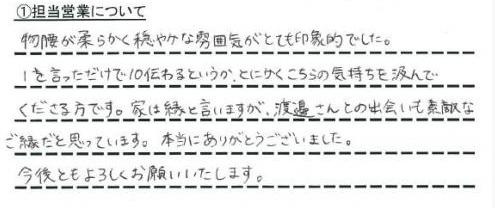 ①担当営業について
物腰が柔らかく穏やかな雰囲気がとても印象的でした。
1を言っただけで10伝わるというか、とにかくこちらの気持ちを汲んで
くださる方です。家は縁と言いますが、渡邉さんとの出会いも素敵な
ご縁だと思っています。本当にありがとうございました。
今後ともよろしくお願いいたします。